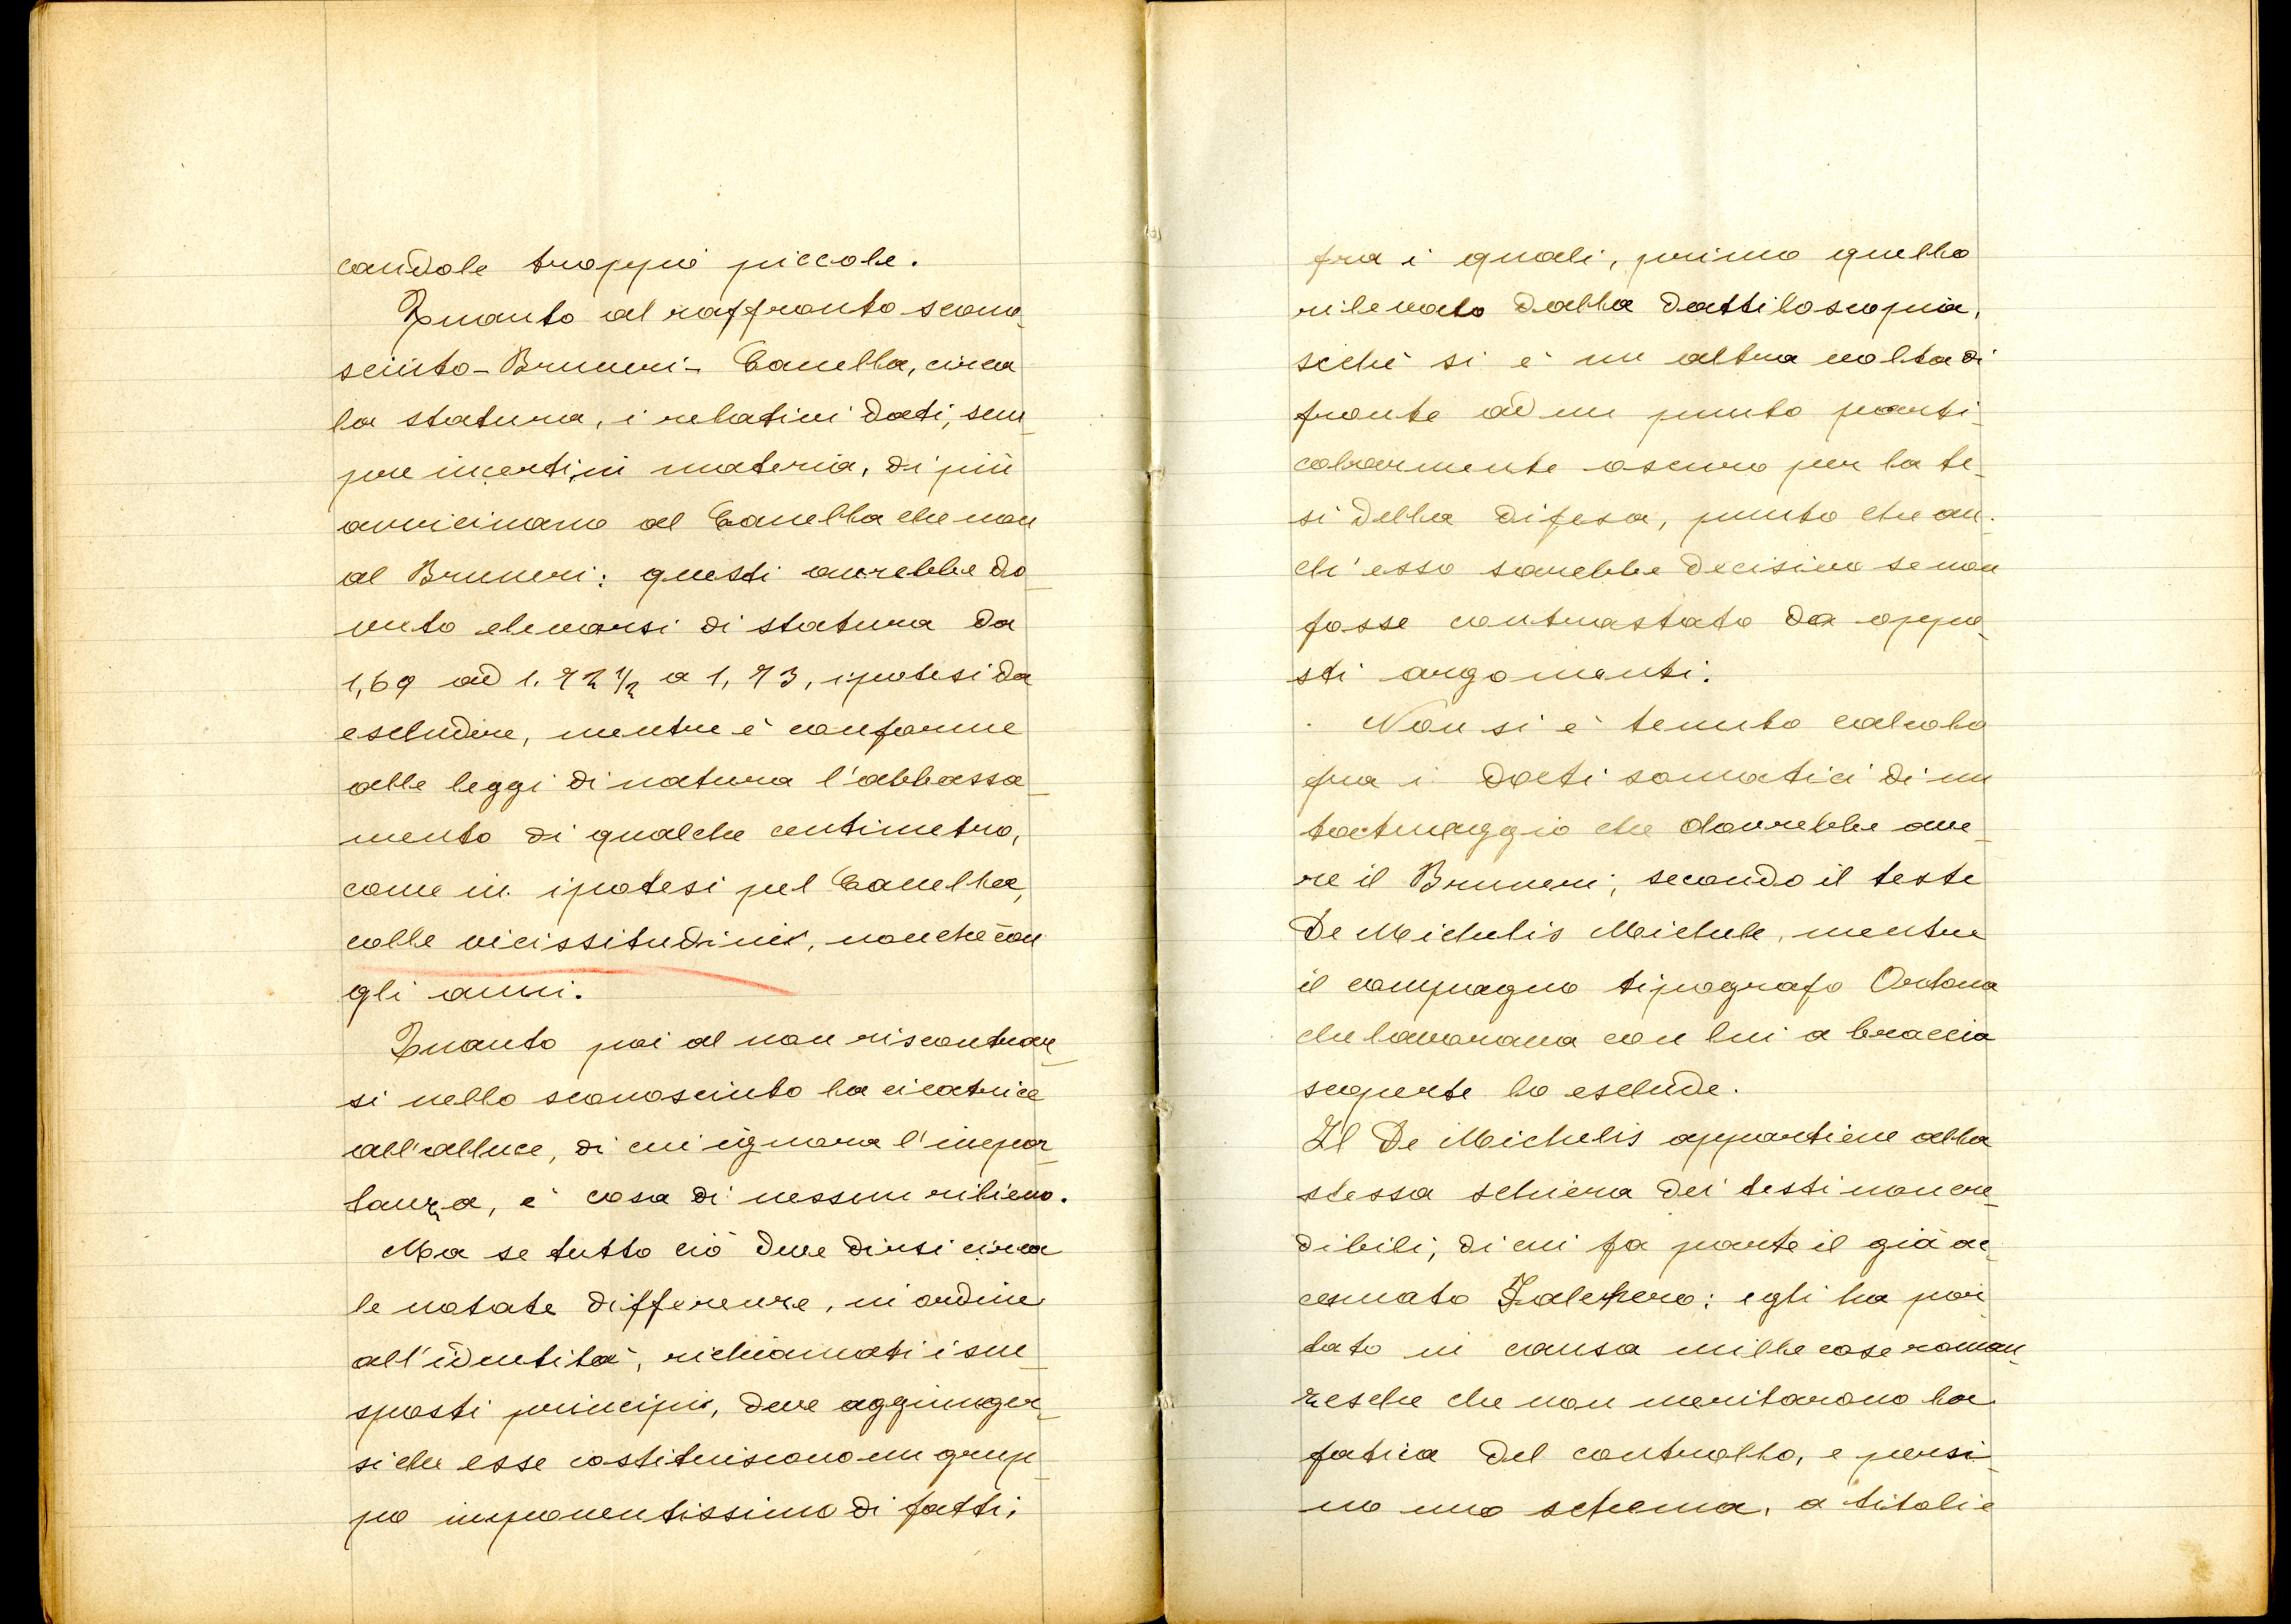 candole troppo piccole.
Quanto al raffronto scono-
sciuto - Bruneri - Canella, circa
la statura, i relativi dati, sem-
pre incerti in materia, di più
avvicinano al Canella che non
al Bruneri: questi avrebbe do-
vuto elevarsi di statura da
1,69 ad 1.72 1/2 a 1,73, ipotesi da
escludere, mentre è conforme
alle leggi di natura l'abbassa-
mento di qualche centimetro,
come in ipotesi pel Canella,
colle vicissitudini, nonchè con
gli anni.
Quanto poi al non riscontrar-
si nello sconosciuto la cicatrice
all'alluce, di cui ignora l'impor-
tanza, è cosa di nessun rilievo.
Ma se tutto ciò deve dirsi circa
le notate differenze, in ordine
all'identità, richiamati i sue-
sposti principii, deve aggiunger-
si che esse costituiscono un grup-
po imponentissimo di fatti,
fra i quali, primo quello
rilevato dalla dattiloscopia,
sichè si è un altra volta di
fronte ad un punto parti-
colarmente oscuro per la te-
si della difesa, punto che an-
ch'esso sarebbe decisivo se non
fosse contrastato da oppo-
sti argomenti.
Non si è tenuto calcolo
fra i dati somatici di un
tatuaggio che dovrebbe ave-
re il Bruneri, secondo il teste
De Michelis Michele, mentre
il compagno tipografo Ortona
che lavorava con lui a braccia
scoperte lo esclude.
Il De Michelis appartiene alla
stessa schiera dei testi non cre-
dibili, di cui fa parte il già ac-
cennato; egli ha por-
tato in causa mille cose roman-
zesche che non meritarono la
fatica del controllo, e persi-
no uno schema, a titoli e